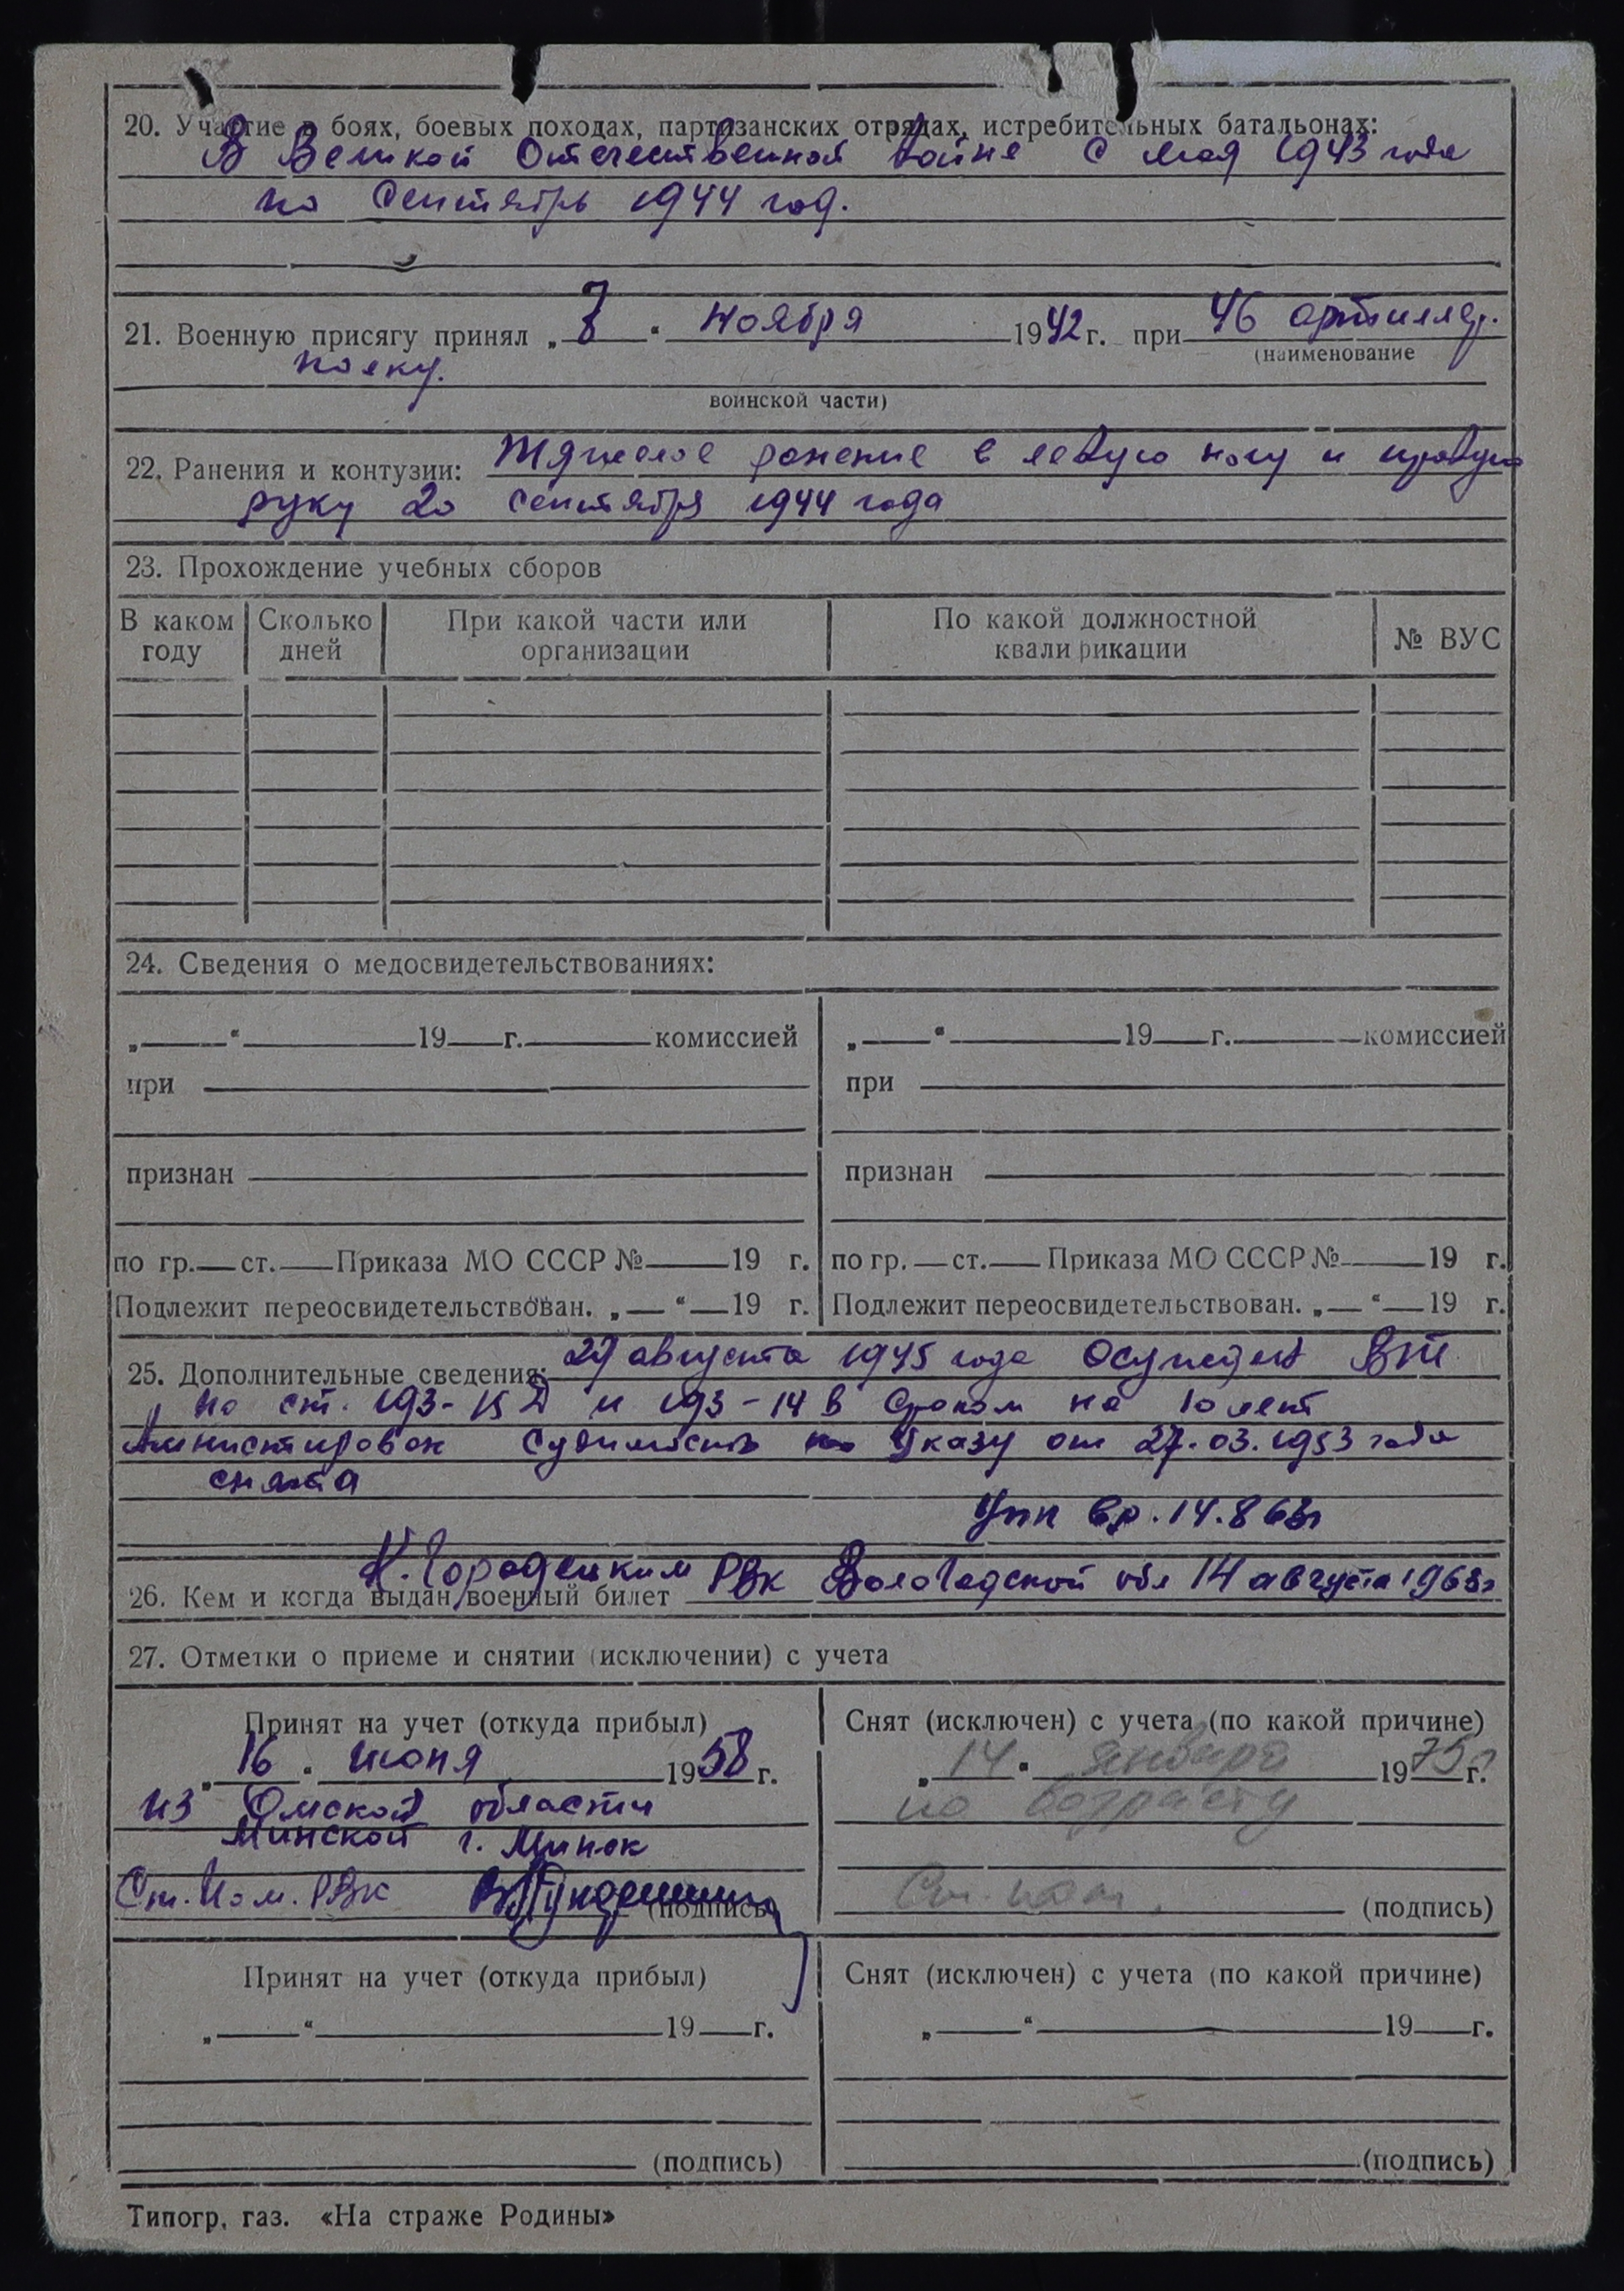 20. Участие в боях, боевых походах, партизанских отрядах, истребительных батальонах:
В Великой Отечественной войне с мая 1943 года
по сентябрь 1944 год.
21. Военную присягу принял „ " ноября 1942 г. при 46 артиллер.
(наименование
полку.
воинской части)
22. Ранения и контузии: Тяжелое ранение в левую ногу и правую
руку 20 сентября 1944 года
23. Прохождение учебных сборов
В каком году Сколько дней При какой части или организации По какой должностной квалификации № ВУС
24. Сведения о медосвидетельствованиях:
„ “ 19 г. комиссией „ “ 19 г. комиссией
при при
признан признан
по гр. ст. Приказа МО СССР № 19 г. по гр. ст. Приказа МО СССР № 19 г.
Подлежит переосвидетельствован. „ “ 19 г. Подлежит переосвидетельствован. „ “ 19 г.
25. Дополнительные сведения: 29 августа 1945 года Осужден ВТ
по ст. 193- и 193-14 В сроком на 10 лет
Амнистирован Судимость по Указу от 27.03.1953 года
снята
14.8 63г
К. Городецким РВК Вологодской обл 14 августа 1963г
26. Кем и когда выдан военный билет
27. Отметки о приеме и снятии (исключении) с учета
Принят на учет (откуда прибыл) Снят (исключен) с учета (по какой причине)
„ 16 “ июня 1958 г. „ 14 “ января 1975 г.
из Омской области по возрасту
Минской г. Минск
Ст. Пом. РВК (подпись) Ст. пом. (подпись)
Принят на учет (откуда прибыл) Снят (исключен) с учета (по какой причине)
„ “ 19 г. „ “ 19 г.
(подпись) (подпись)
Типогр. газ. «На страже Родины»